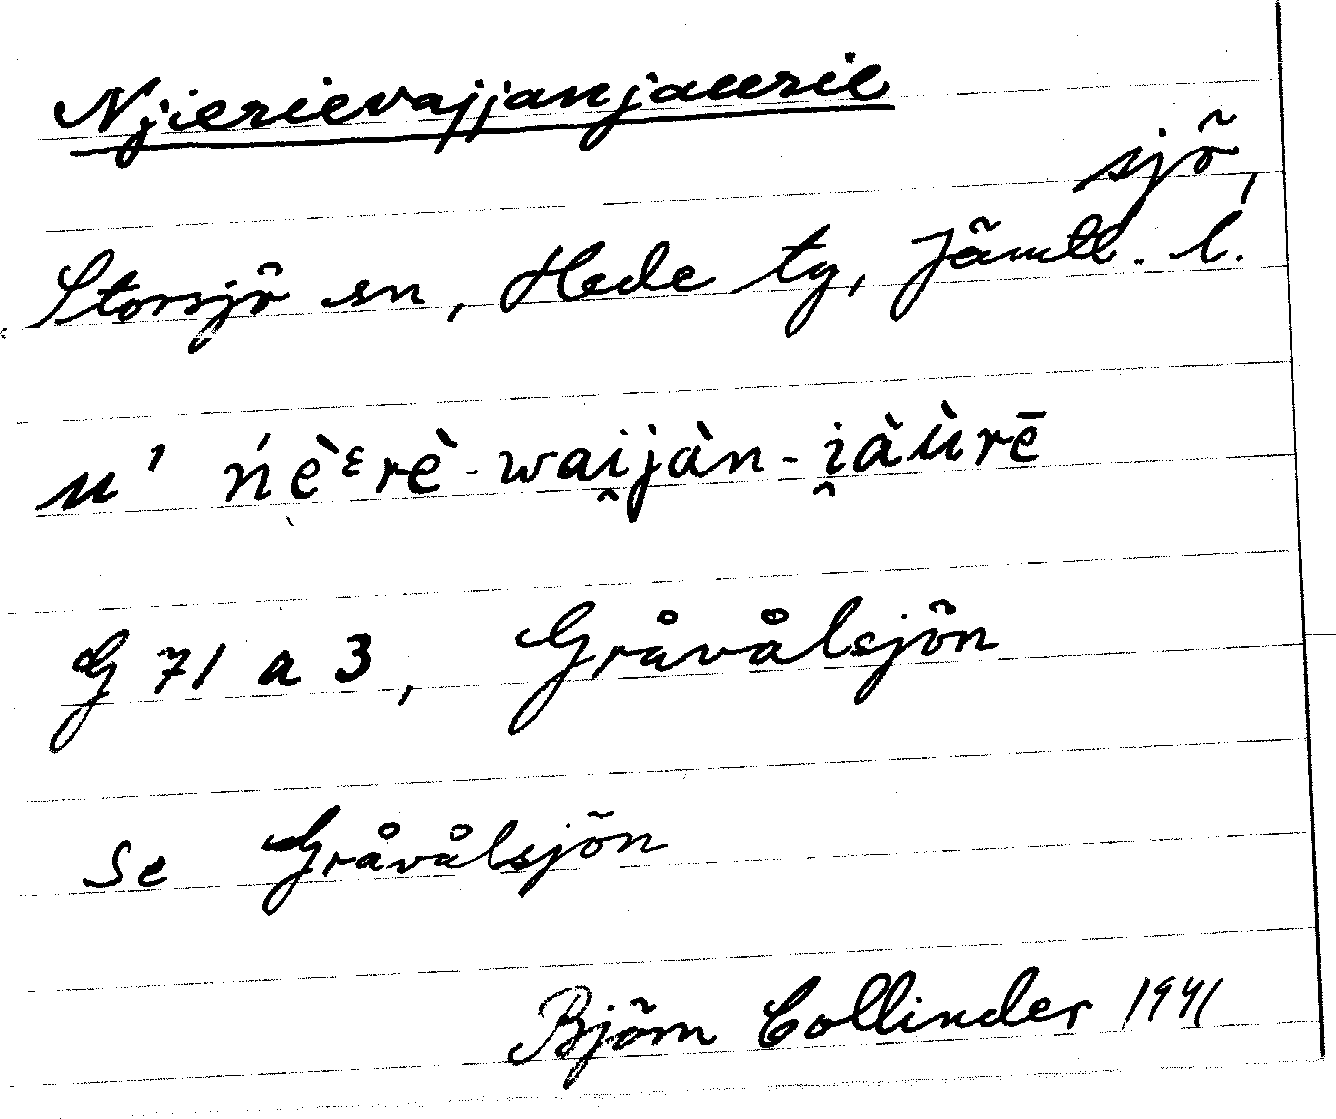 Njierievajjanjaurie
sjö,
Storsjö sn, Hede tg, Jämtl. l.
u' ńὲ̀ᵋrè-wai̯jàn-i̯àùrē
G 71 a 3, Gråvålsjön
se Gråvålsjön
Björn Collinder 1941